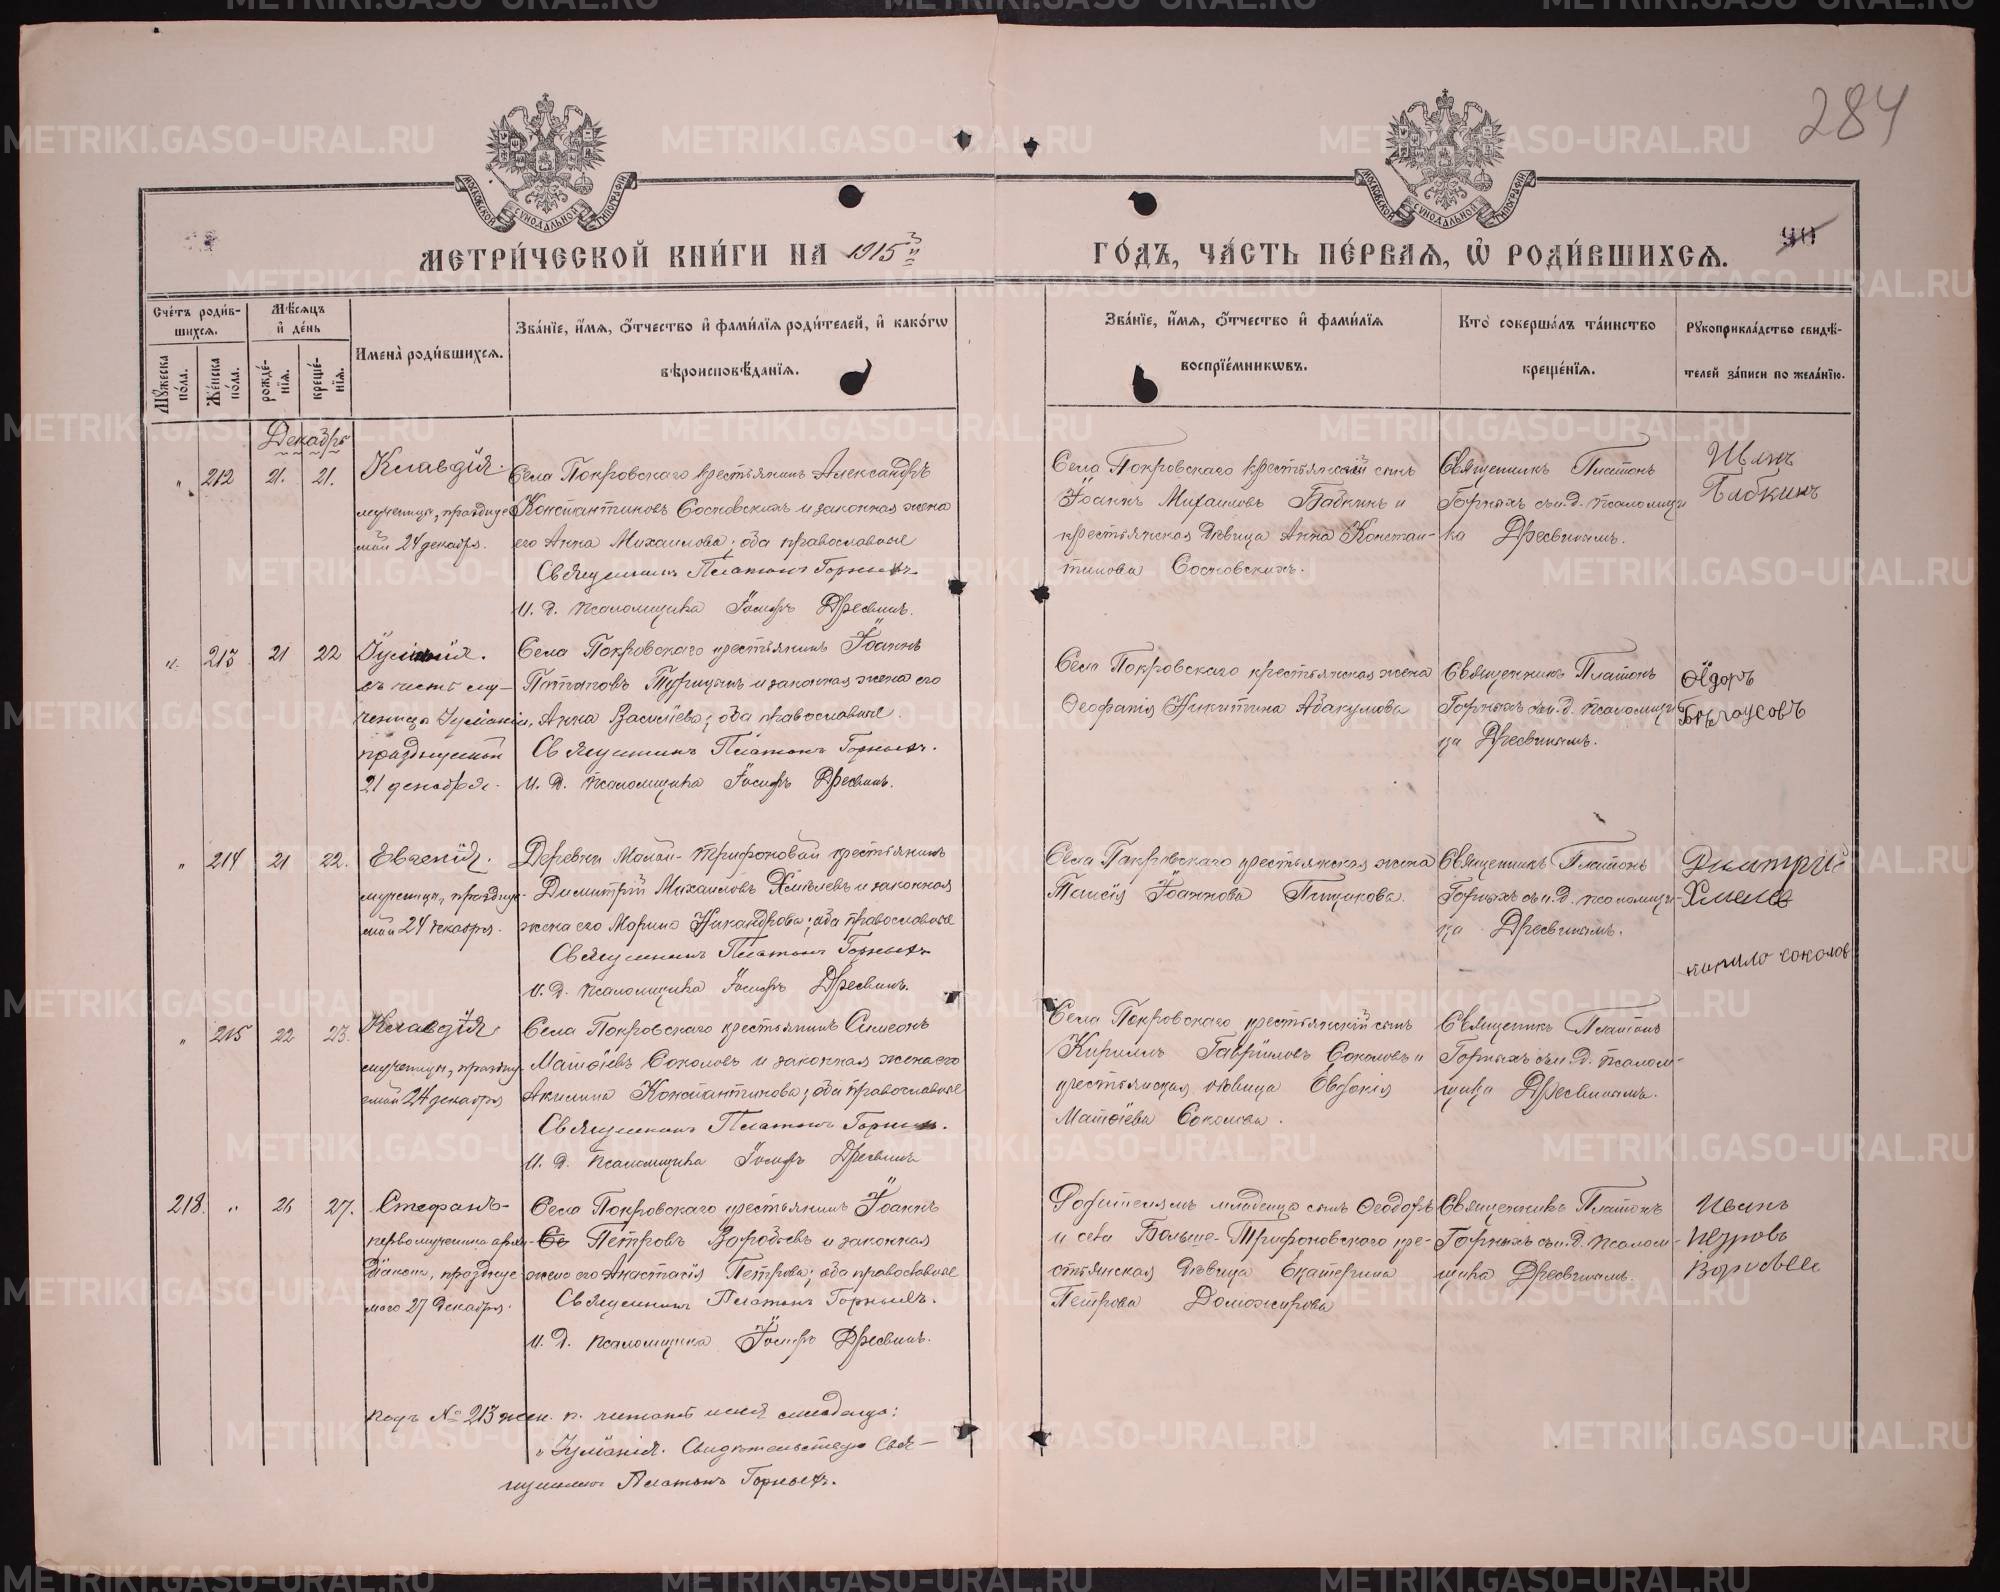 284
МОСКОВСКОЙ СѴНОДАЛЬНОЙ ТИПОГРАФІИ
МОСКОВСКОЙ СѴНОДАЛЬНОЙ ТИПОГРАФІИ
МЕТРИ́ЧЕСКОЙ КНИ́ГИ НА 1915й
ГО́ДЪ, ЧА́СТЬ ПЕ́РВАѦ, Ѡ҆ РОДИ́ВШИХСѦ.
90
Сче́тъ роди́в-
шихсѧ.
Мꙋ́жеска по́ла.
Же́нска по́ла.
Мѣ́сѧцъ
и҆ де́нь
рожде́-
нїѧ.
креще́-
нїѧ.
Имена̀ роди́вшихсѧ.
Зва́нїе, и҆́мѧ, ѻ҆́тчество и҆ фами́лїѧ роди́телей, и҆ како́гѡ
вѣроисповѣ́данїѧ.
Зва́нїе, и҆́мѧ, ѻ҆́тчество и҆ фами́лїѧ
воспрїе́мникѡвъ.
Кто̀ соверша́лъ та́инство
креще́нїѧ.
Рꙋкоприкла́дство свидѣ́-
телей за́писи по жела́нїю.
Декабрь
" 212 21. 21. Клавдія.
мученицы, празднуе
мой 24 декабря.
Села Покровскаго крестьянинъ Александръ
Константиновъ Сосновскихъ и законная жена
его Анна Михаилова; оба православные
Священникъ Платонъ Горныхъ
И. Д. псаломщика Іосифъ Дресвинъ.
Села Покровскаго крестьянскій сынъ
Іоаннъ Михаиловъ Бабкинъ и
крестьянская дѣвица Анна Констан-
тинова Сосновскихъ.
Священникъ Платонъ
Горныхъ съ и. д. псаломщи
ка Дресвинымъ.
Бабкинъ
" 213 21 22 Іуліанія.
въ честь му-
ченицы Іуліаніи,
празднуемой
21 декабря.
Села Покровскаго крестьянинъ Іоаннъ
Потаповъ Турицынъ и законная жена его
Анна Василіева; оба православные.
Священникъ Платонъ Горныхъ.
И. Д. псаломщика Іосифъ Дресвинъ.
Села Покровскаго крестьянская жена
Ѳеофанія Никитина Абакумова
Священникъ Платонъ
Горныхъ съ и. д. псаломщи
ка Дресвинымъ.
Ѳёдоръ
Бѣлоусовъ
" 214 21 22. Евгенія.
мученицы, праздну-
мой 24 декабря.
Деревни Малой-Трифоновой крестьянинъ
Димитрій Михаиловъ Хмѣлевъ и законная
жена его Марина Никандрова; оба православные
Священникъ Платонъ Горныхъ
И. Д. псаломщика Іосифъ Дресвинъ.
Села Покровскаго крестьянская жена
Таисія Іоаннова Пищикова.
Священникъ Платонъ
Горныхъ съ и. д. псаломщи-
ка Дресвинымъ.
Дмитрій
Хмелев
" 215 22 23. Клавдія,
мученицы, праздну
емой 24 декабря
Села Покровскаго крестьянинъ Симеонъ
Матѳіевъ Соколовъ и законная жена его
Акилина Константинова; оба православные
Священникъ Платонъ Горныхъ.
И. Д. псаломщика Іосифъ Дресвинъ
Села Покровскаго крестьянскій сынъ
Кириллъ Гавріиловъ Соколовъ и
крестьянская дѣвица Евдокія
Матѳіева Соколова.
Священникъ Платонъ
Горныхъ съ и. д. псалом-
щика Дресвинымъ.
кирило соколов
218. " 26 27. Стефанъ-
первомученика архи-
діакона, праздну
маго 27 декабря.
Села Покровскаго крестьянинъ Іоаннъ
Петровъ Воробьевъ и законная
жена его Анастасія Петрова; оба православные
Священникъ Платонъ Горныхъ.
И. Д. псаломщика Іосифъ Дресвинъ.
Родителямъ младенца сынъ Ѳеодоръ
и села Больше-Трифоновскаго кре-
стьянская дѣвица Екатерина
Петрова Доможирова
Священникъ Платонъ
Горныхъ съ и. д. псалом-
щика Дресвинымъ.
Иванъ
Петровъ
подъ № 213 жен. п. читать имя младенца:
"Іуліанія. Свидѣтельствую Свя-
щенникъ Платонъ Горныхъ.
METRIKI.GASO-URAL.RU